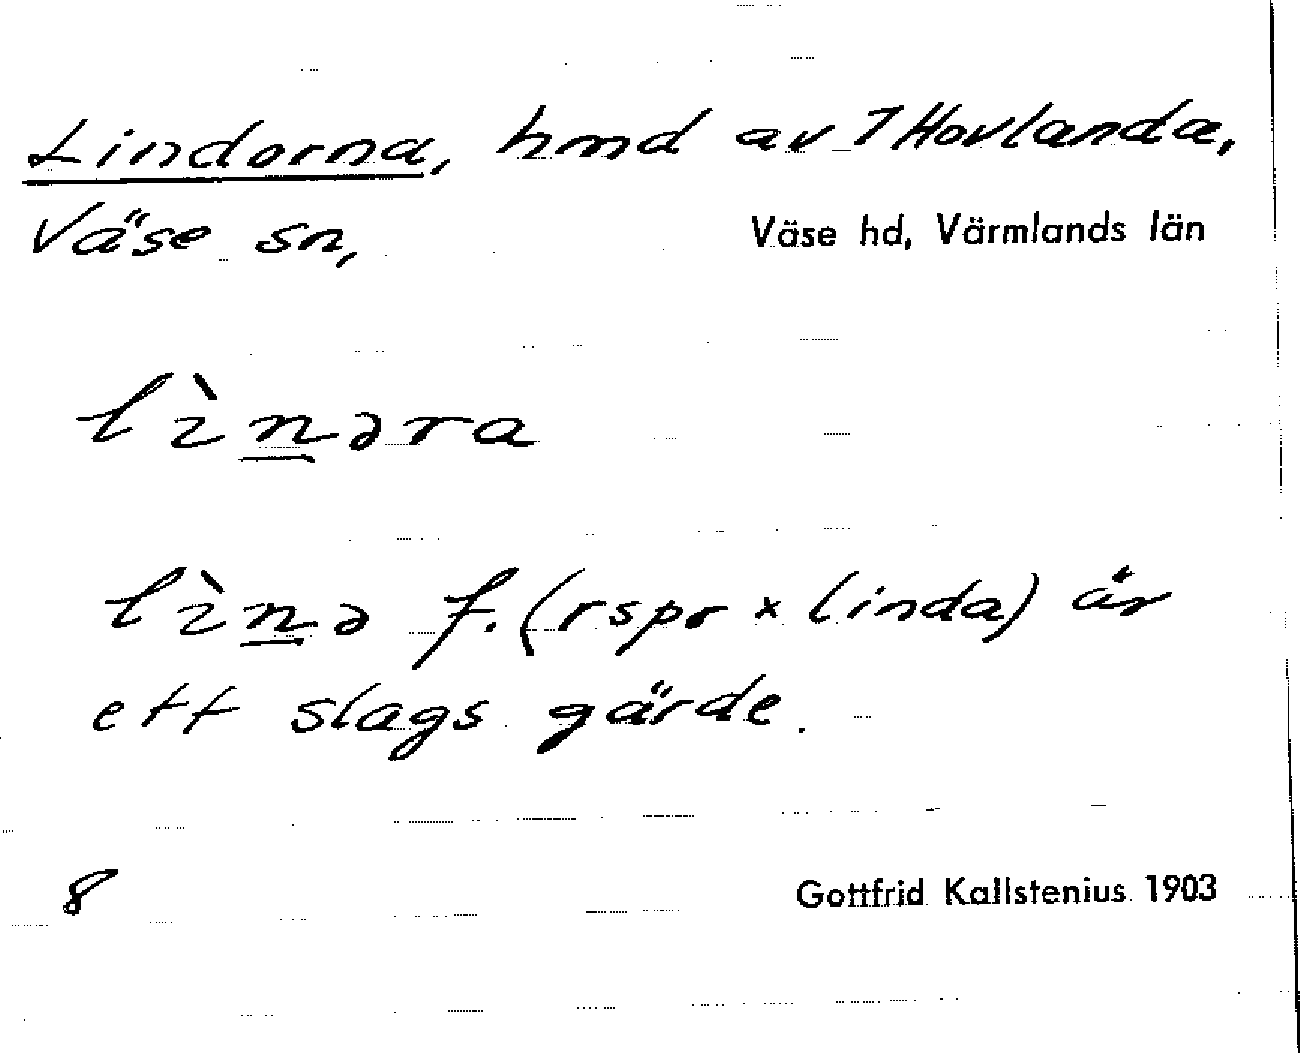 Lindorna, hmd av 1 Hovlanda,
Väse sn, Väse hd, Värmlands län
lìn̲əra
lìn̲ə f. (rspr × linda) är
ett slags gärde.
8 Gottfrid Kallstenius 1903